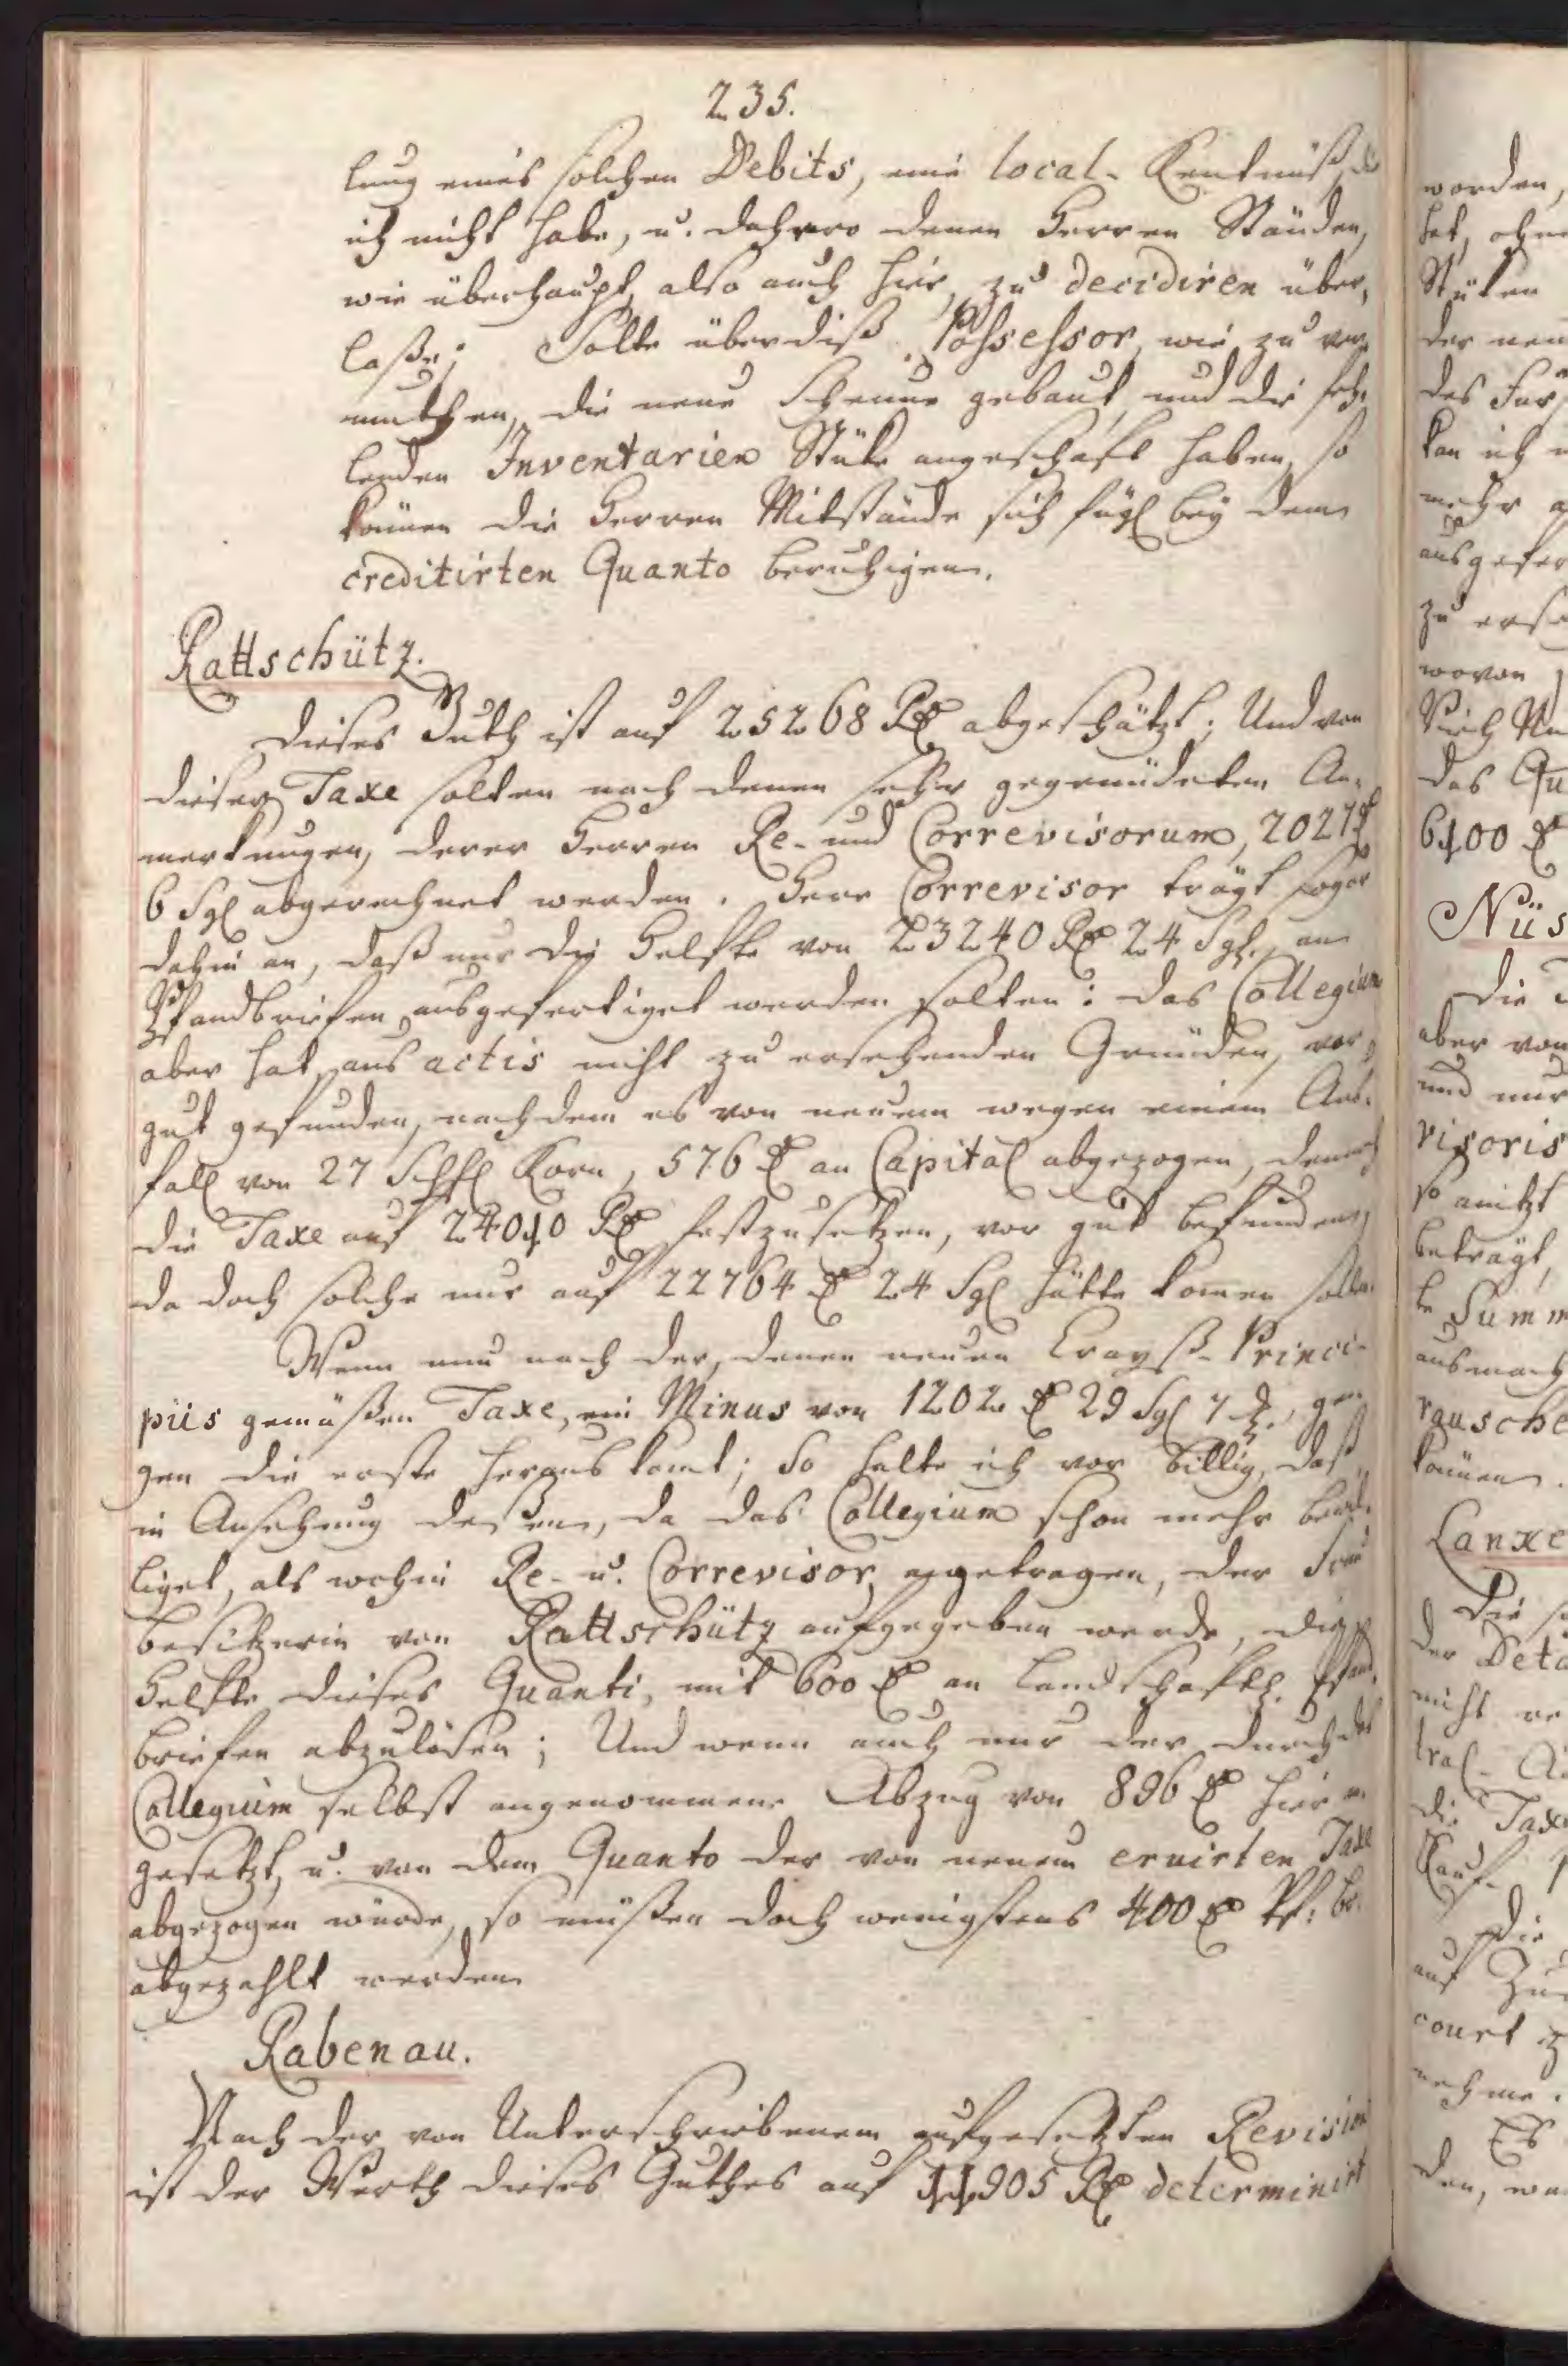 235.
lung eines solchen Debits, eine local-Kentnuß, die
ich nicht habe, u. dahero denen Herren Ständen,
wie überhaupt, also auch hier, zu decidiren über,
laße; Solte überdiß Possessor, wie zu ver,
muthen, die neue Scheune gebaut, und die feh,
lenden Inventarien Stüke angeschaft haben, so
können die Herren Mitstände sich fügl bey dem
creditirten Quanto beruhigen.
Rattschütz.
Dieses Guth ist auf 25268 Rx abgeschätzt; Und von
dieser Taxe solten nach denen sehr gegründeten An-
merkungen, derer Herren Re- und Correvisorum, 2027 x
6 Sgl abgerechnet werden. Herr Correvisor trägt sogar
dahin an, daß nur die Helfte von 23240 Rx 24 Sgl. an
Pfandbriefen ausgefertiget werden solten: das Collegium
aber hat, aus actis nicht zu ersehenden Gründen, vor
gut gefunden, nachdem es von neuem wegen einem Aus-
fall von 27 Schfl Korn, 576 x an Capital abgezogen, dennoch
die Taxe auf 24010 Rx festzusetzen, vor gut befunden,
da doch solche nur auf 22764 x 24 Sgl hätte komen sollen.
Wenn nun nach der, denen neuen Crayß-Princi-
piis gemäßen Taxe, ein Minus von 1202 x 29 Sgl 7 d., ge-
gen die erste heraus komt; So halte ich vor billig, daß
in Ansehung deßen, da das Collegium schon mehr bewil-
liget, als wohin Re- u. Correvisor angetragen, der Frau
Besitzerin von Rattschütz aufgegeben werde, die
Helfte dieses Quanti, mit 600 x an Landschaftl. Pfand-
briefen abzulösen; Und wenn auch nur der durch das
Collegium selbst angenommene Abzug von 896 x hier an
gesetzt, u. von dem Quanto der von neuem eruirten Taxe
abgezogen würde, so müßen doch wenigstens 400 x Pf: br.
abgezahlt werden
Rabenau.
Nach der von Unterschriebenem aufgesetzten Revision
ist der Werth dieses Guthes auf 11905 Rx determinirt
worden,
Stüken
kan ich
mehr
wovon
das Qu
6100 x
Nüs
Die
aber von
und nur
visoris
so anitzt
beträgt,
Summ
ausmach
rausche
können.
Lanke
der Deta
nicht
die Taxe
Kauf-
Die
auf
court
nehme.
Es